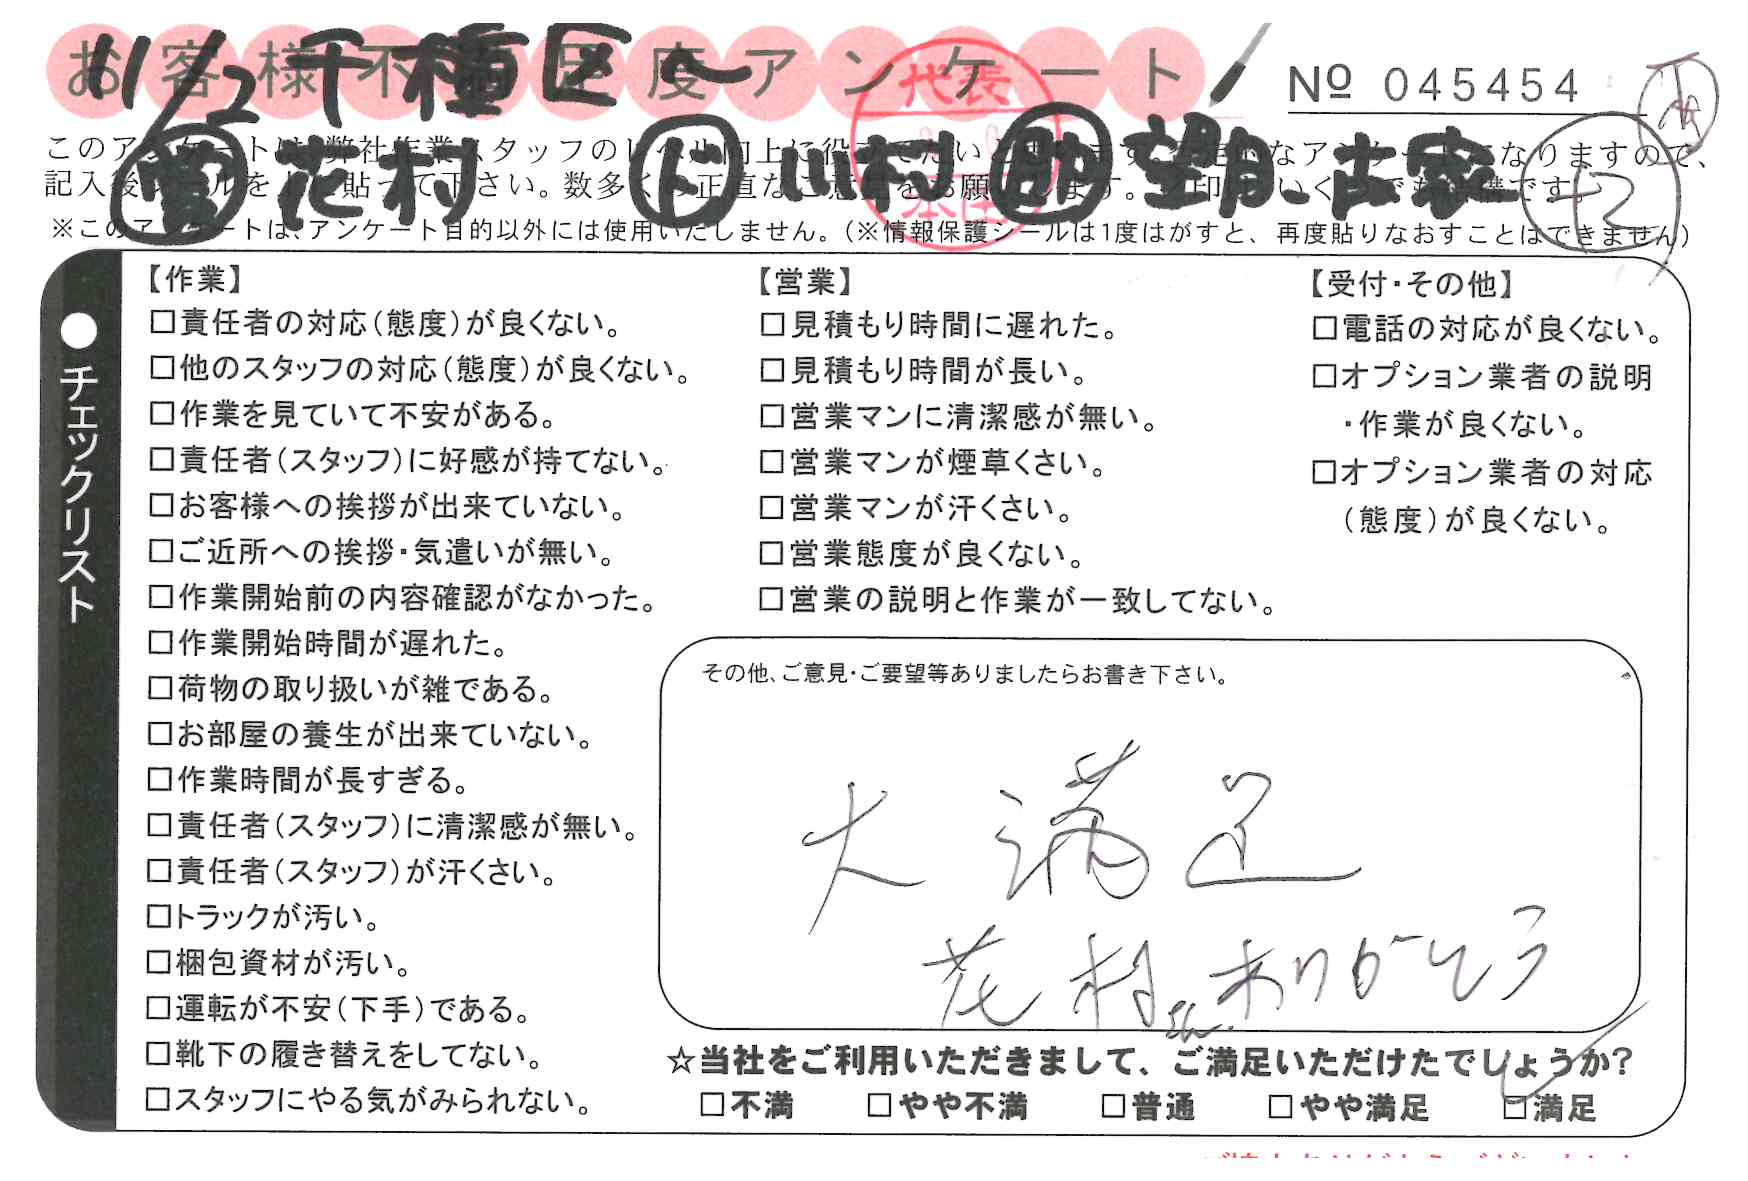 お客様不満足度アンケート
11/2 千種区〜
№ 045454
営 花村 ト 山村 助 望月、古家
+2
代表
このアンケートは、弊社作業スタッフのレベル向上に役立てたいと
なアンケートになりますので、
記入後シールを上に貼って下さい。数多くの正直なご意見をお願いします。
※このアンケートは、アンケート目的以外には使用いたしません。(※情報保護シールは1度はがすと、再度貼りなおすことはできません)
●チェックリスト
【作業】
□責任者の対応(態度)が良くない。
□他のスタッフの対応(態度)が良くない。
□作業を見ていて不安がある。
□責任者(スタッフ)に好感が持てない。
□お客様への挨拶が出来ていない。
□ご近所への挨拶・気遣いが無い。
□作業開始前の内容確認がなかった。
□作業開始時間が遅れた。
□荷物の取り扱いが雑である。
□お部屋の養生が出来ていない。
□作業時間が長すぎる。
□責任者(スタッフ)に清潔感が無い。
□責任者(スタッフ)が汗くさい。
□トラックが汚い。
□梱包資材が汚い。
□運転が不安(下手)である。
□靴下の履き替えをしてない。
□スタッフにやる気がみられない。
【営業】
□見積もり時間に遅れた。
□見積もり時間が長い。
□営業マンに清潔感が無い。
□営業マンが煙草くさい。
□営業マンが汗くさい。
□営業態度が良くない。
□営業の説明と作業が一致してない。
【受付・その他】
□電話の対応が良くない。
□オプション業者の説明
・作業が良くない。
□オプション業者の対応
(態度)が良くない。
その他、ご意見・ご要望等ありましたらお書き下さい。
大満足
花村さんありがとう
☆当社をご利用いただきまして、ご満足いただけたでしょうか?
□不満 □やや不満 □普通 □やや満足 □満足